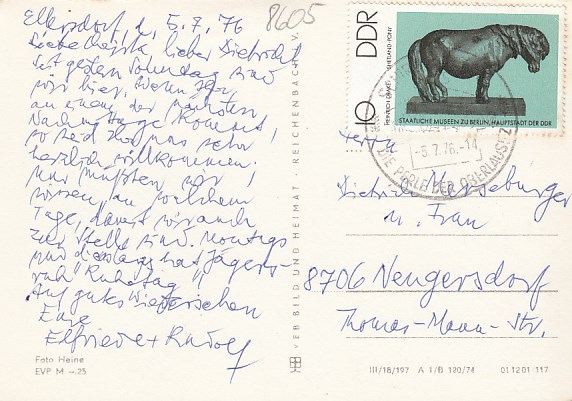 Ellersdorf, d. 5.7.76
8605
Liebe Christa, lieber Dietrich!
Seit gestern Sonntag sind
wir hier. Wenn Ihr
an einem der nächsten
Nachmittage kommt,
so seid Ihr uns sehr
herzlich willkommen.
Nur müßten wir
wissen, an welchem
Tage, damit wir auch
zur Stelle sind. Montags
und dienstags hat "Jägers-
ruh" Ruhetag
Auf gutes Wiedersehen
Eure
Elfriede + Rudolf
Foto Heine
EVP M -.25
VEB BILD UND HEIMAT · REICHENBACH i. V.
DDR
10
HEINRICH DRAKE SHETLAND-PONY
STAATLICHE MUSEEN ZU BERLIN, HAUPTSTADT DER DDR
-5.7.76.-14
DIE PERLE DER OBERLAUSITZ
Herrn
Dietrich Merseburger
u. Frau
8706 Neugersdorf
Thomas-Mann-Str.
III/18/197 A 1/B 120/74 01 12 01 117